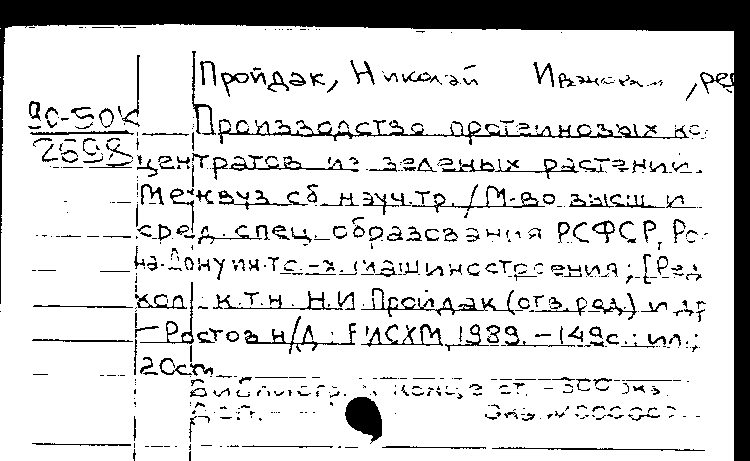 Пройдак, Николай Иванович, ред
90-50К
2698
Производство протеиновых ко
центратов из зеленых растений.
Межвуз. сб. науч. тр. / М-во высш и
сред. спец. образования РСФСР, Ро
на-Дону ин-т с.-х. машиностроения; [Ред
кол.: к.т.н. Н.И. Пройдак (отв. ред.) и др
— Ростов н/Д : РИСХМ, 1989. — 149с.: ил.;
20см
Библиогр. в конце ст. — 300 экз.
Деп. —